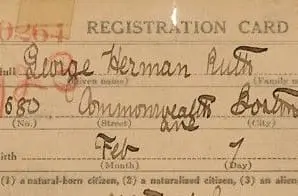 REGISTRATION CARD
George Herman Ruth
(Given name) (Family n
680 Commonwealth Boston
ave
(No.) (Street) (City)
irth Feb 7
(Month) (Day)
(1) a natural-born citizen, (2) a naturalized citizen, (3) an alien